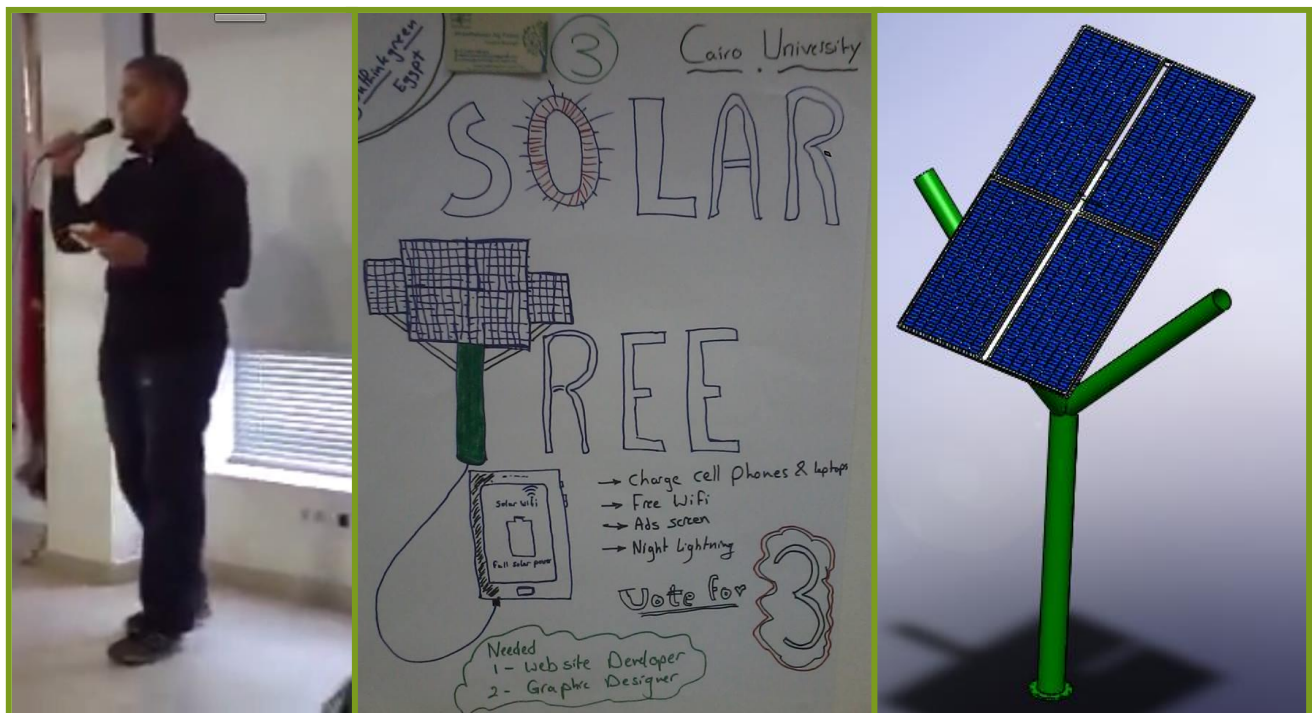 3
Cairo University
Egypt
SOLAR
TREE
Solar Wifi
Full solar power
→ Charge cell Phones & laptops
→ Free Wifi
→ Ads screen
→ Night Lightning
Vote for 3
Needed
1- Website Developer
2- Graphic Designer